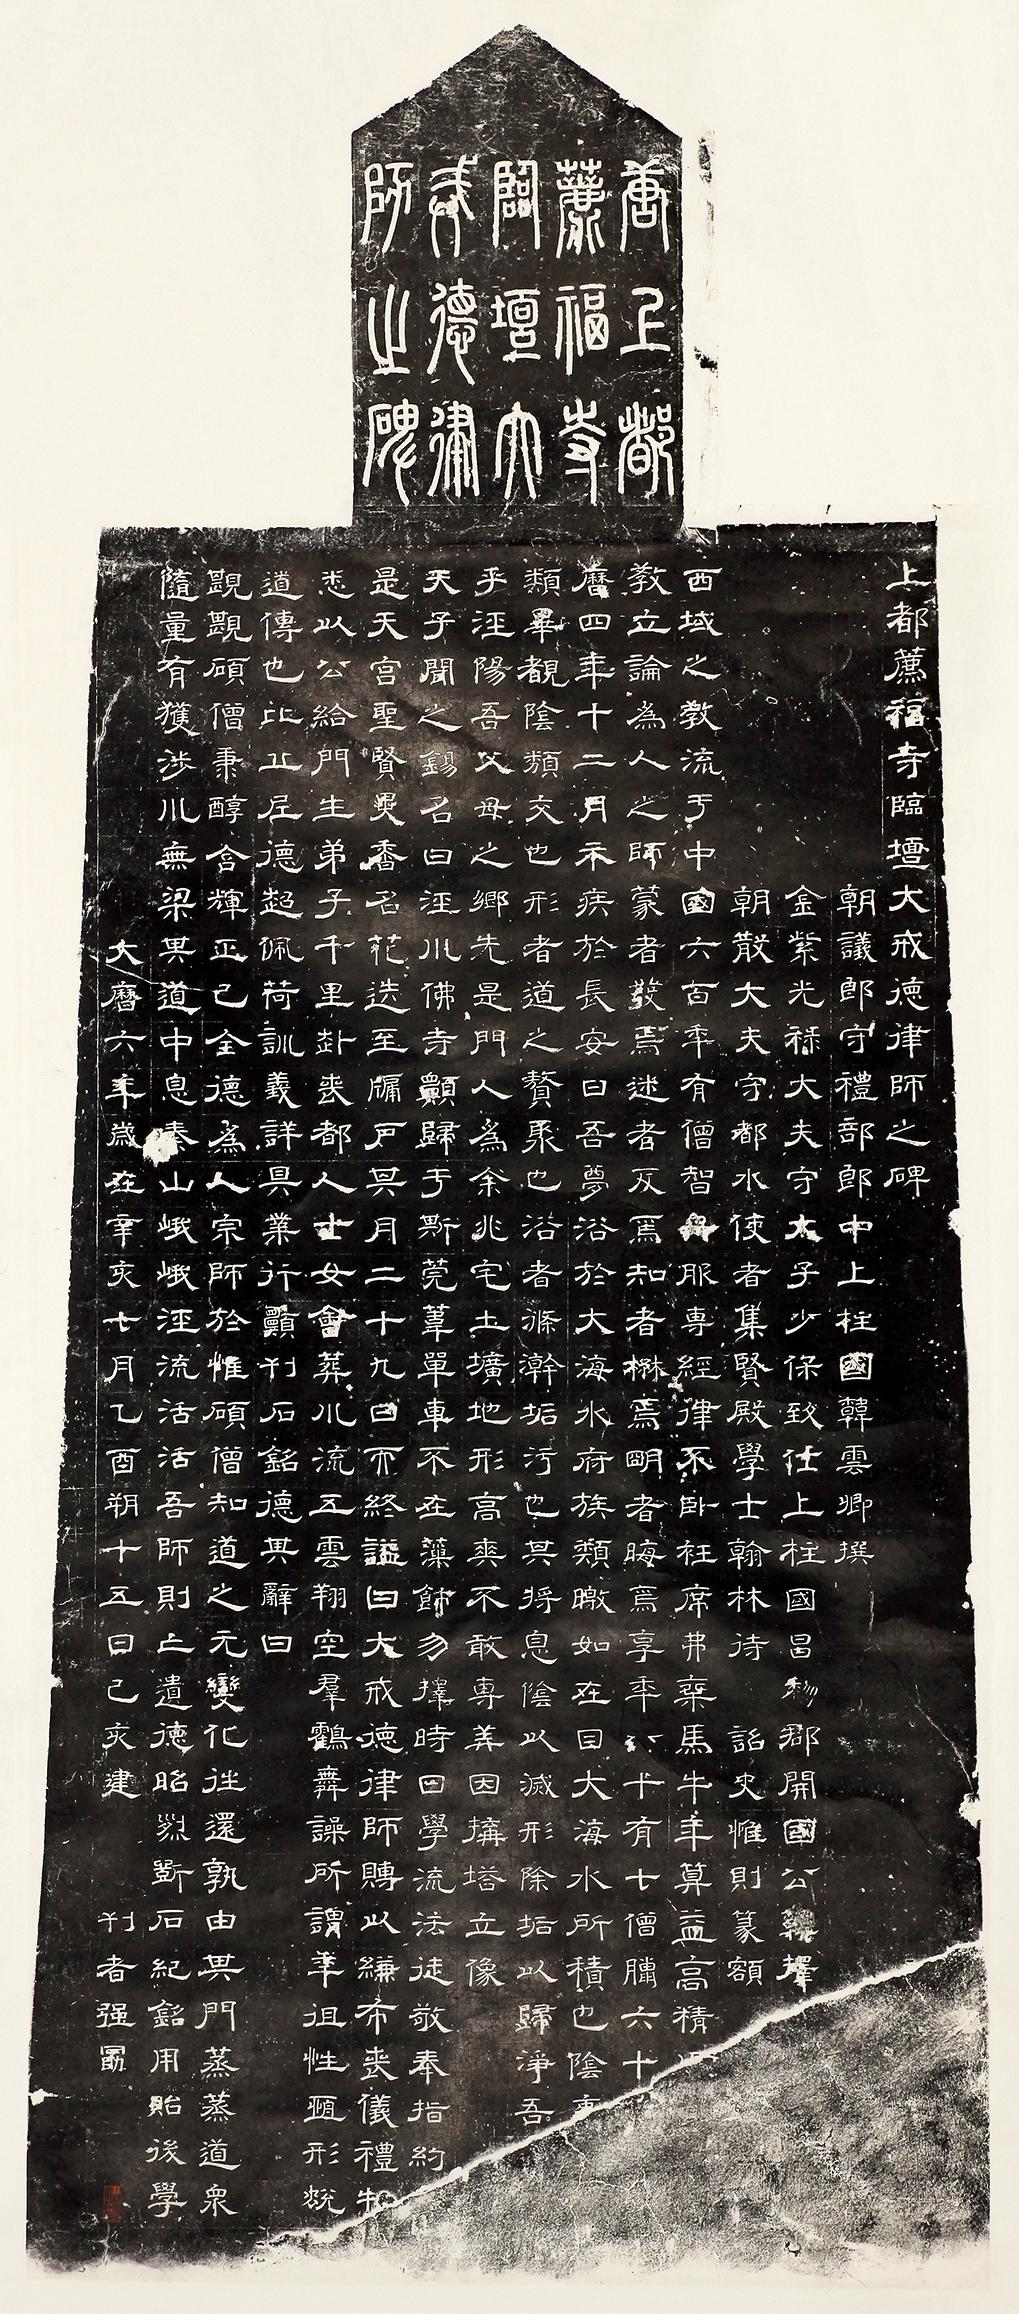 唐上都
薦福寺
臨壇大
戒德律
師之碑
上都薦福寺臨壇大戒德律師之碑
朝議郎守禮部郎中上柱國韓雲卿撰
金紫光祿大夫守太子少保致仕上柱國昌黎郡開國公韓擇
朝散大夫守都水使者集賢殿學士翰林待詔史惟則篆額
西域之教流于中國六百年有僧智舟服專經律不卧衽席弗乘馬牛年算益高精
教立論為人之師蒙者發焉迷者反焉知者楙焉明者晦焉享年八十有七僧臘六十
曆四年十二月示疾於長安曰吾夢浴於大海水府族類暾如在目大海水所積也陰
類畢覩陰類交也形者道之贅聚也浴者滌澣垢汙也其將息陰以滅形除垢以歸淨吾
乎涇陽吾父母之鄉先是門人為余兆宅土壙地形高爽不敢專美因搆塔立像
天子聞之錫名曰涇川佛寺顝歸于斯莞葦單車不在藻飾勿擇時日學流法徒敬奉指約
是天宮聖賢畟香名花迭至牖戶其月二十九日而終謚曰大戒德律師賻以縑布喪儀禮物
悉以公給門生弟子千里赴喪都人士女會葬川流五雲翔空羣鶴舞譟所謂年徂性䢌形蛻
道傳也比丘尼德超佩荷訓義詳具業行顝刊石銘德其辭曰
覬覬碩僧秉醇含輝正己全德為人宗師於惟碩僧知道之元變化往還孰由其門蒸蒸道眾
隨量有獲涉川無梁其道中息泰山峨峨涇流活活吾師則亡遺德昭烈斲石紀銘用貽後學
大曆六年歲在辛亥七月乙酉朔十五日己亥建　刊者强